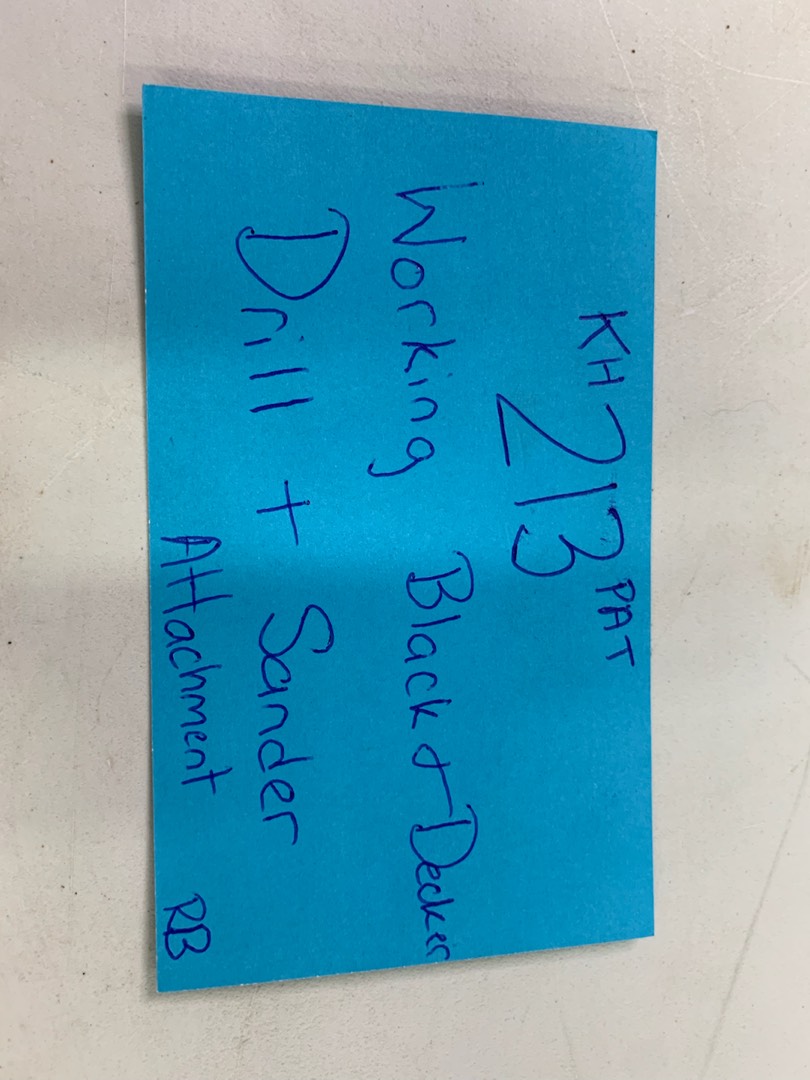 KH 213 PAT
Working Black & Decker
Drill + Sander
Attachment RB